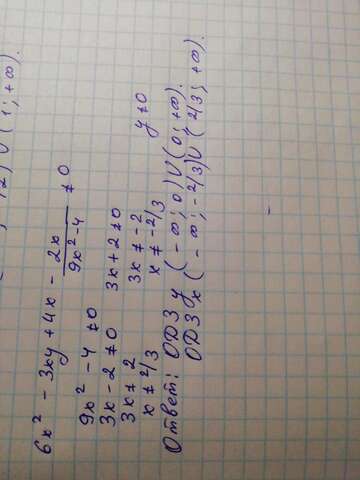 , +2) U (1; +∞).
6x² - 3xy + 4x - 2x/(9x² - 4) ≠ 0
9x² - 4 ≠ 0
3x - 2 ≠ 0 3x + 2 ≠ 0 y ≠ 0
3x ≠ 2 3x ≠ -2
x ≠ 2/3 x ≠ -2/3
Ответ: ОДЗ y (-∞; 0) U (0; +∞).
ОДЗ x (-∞; -2/3) U (2/3; +∞).